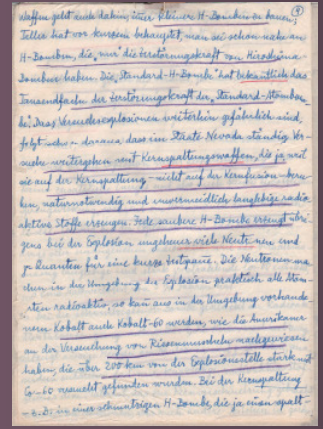 ④
Waffen geht auch dahin, immer kleinere H-Bomben zu bauen;
Teller hat vor kurzem behauptet, man sei schon nahe an
H-Bomben, die „nur" die Zerstörungskraft von Hiroshima
Bomben haben. Die „Standard-H-Bombe" hat bekanntlich das
Tausendfache der Zerstörungskraft der „Standard-Atombom-
be". Dass Versuchsexplosionen weiterhin gefährlich sind,
folgt schon daraus, dass im Staate Nevada ständig Ver-
suche weitergehen mit Kernspaltungswaffen, die ja weil
sie auf der Kernspaltung – nicht auf der Kernfusion – beru-
hen, naturnotwendig und unvermeidlich langlebige radio-
aktive Stoffe erzeugen. Jede saubere H-Bombe erzeugt übri-
gens bei der Explosion ungeheuer viele Neutronen und
γ Quanten für eine kurze Zeitspanne. Die Neutronen ma-
chen in der Umgebung der Explosion praktisch alle Atom-
arten radioaktiv, so kann aus in der Umgebung vorhande-
nem Kobalt auch Kobalt-60 werden, wie die Amerikaner
an der Verseuchung von Riesenmuscheln nachgewiesen
haben, die über 200 km von der Explosionsstelle stark mit
Co-60 verseucht gefunden wurden. Bei der Kernspaltung
– z.B. in einer schmutzigen H-Bombe, die ja einen spalt-